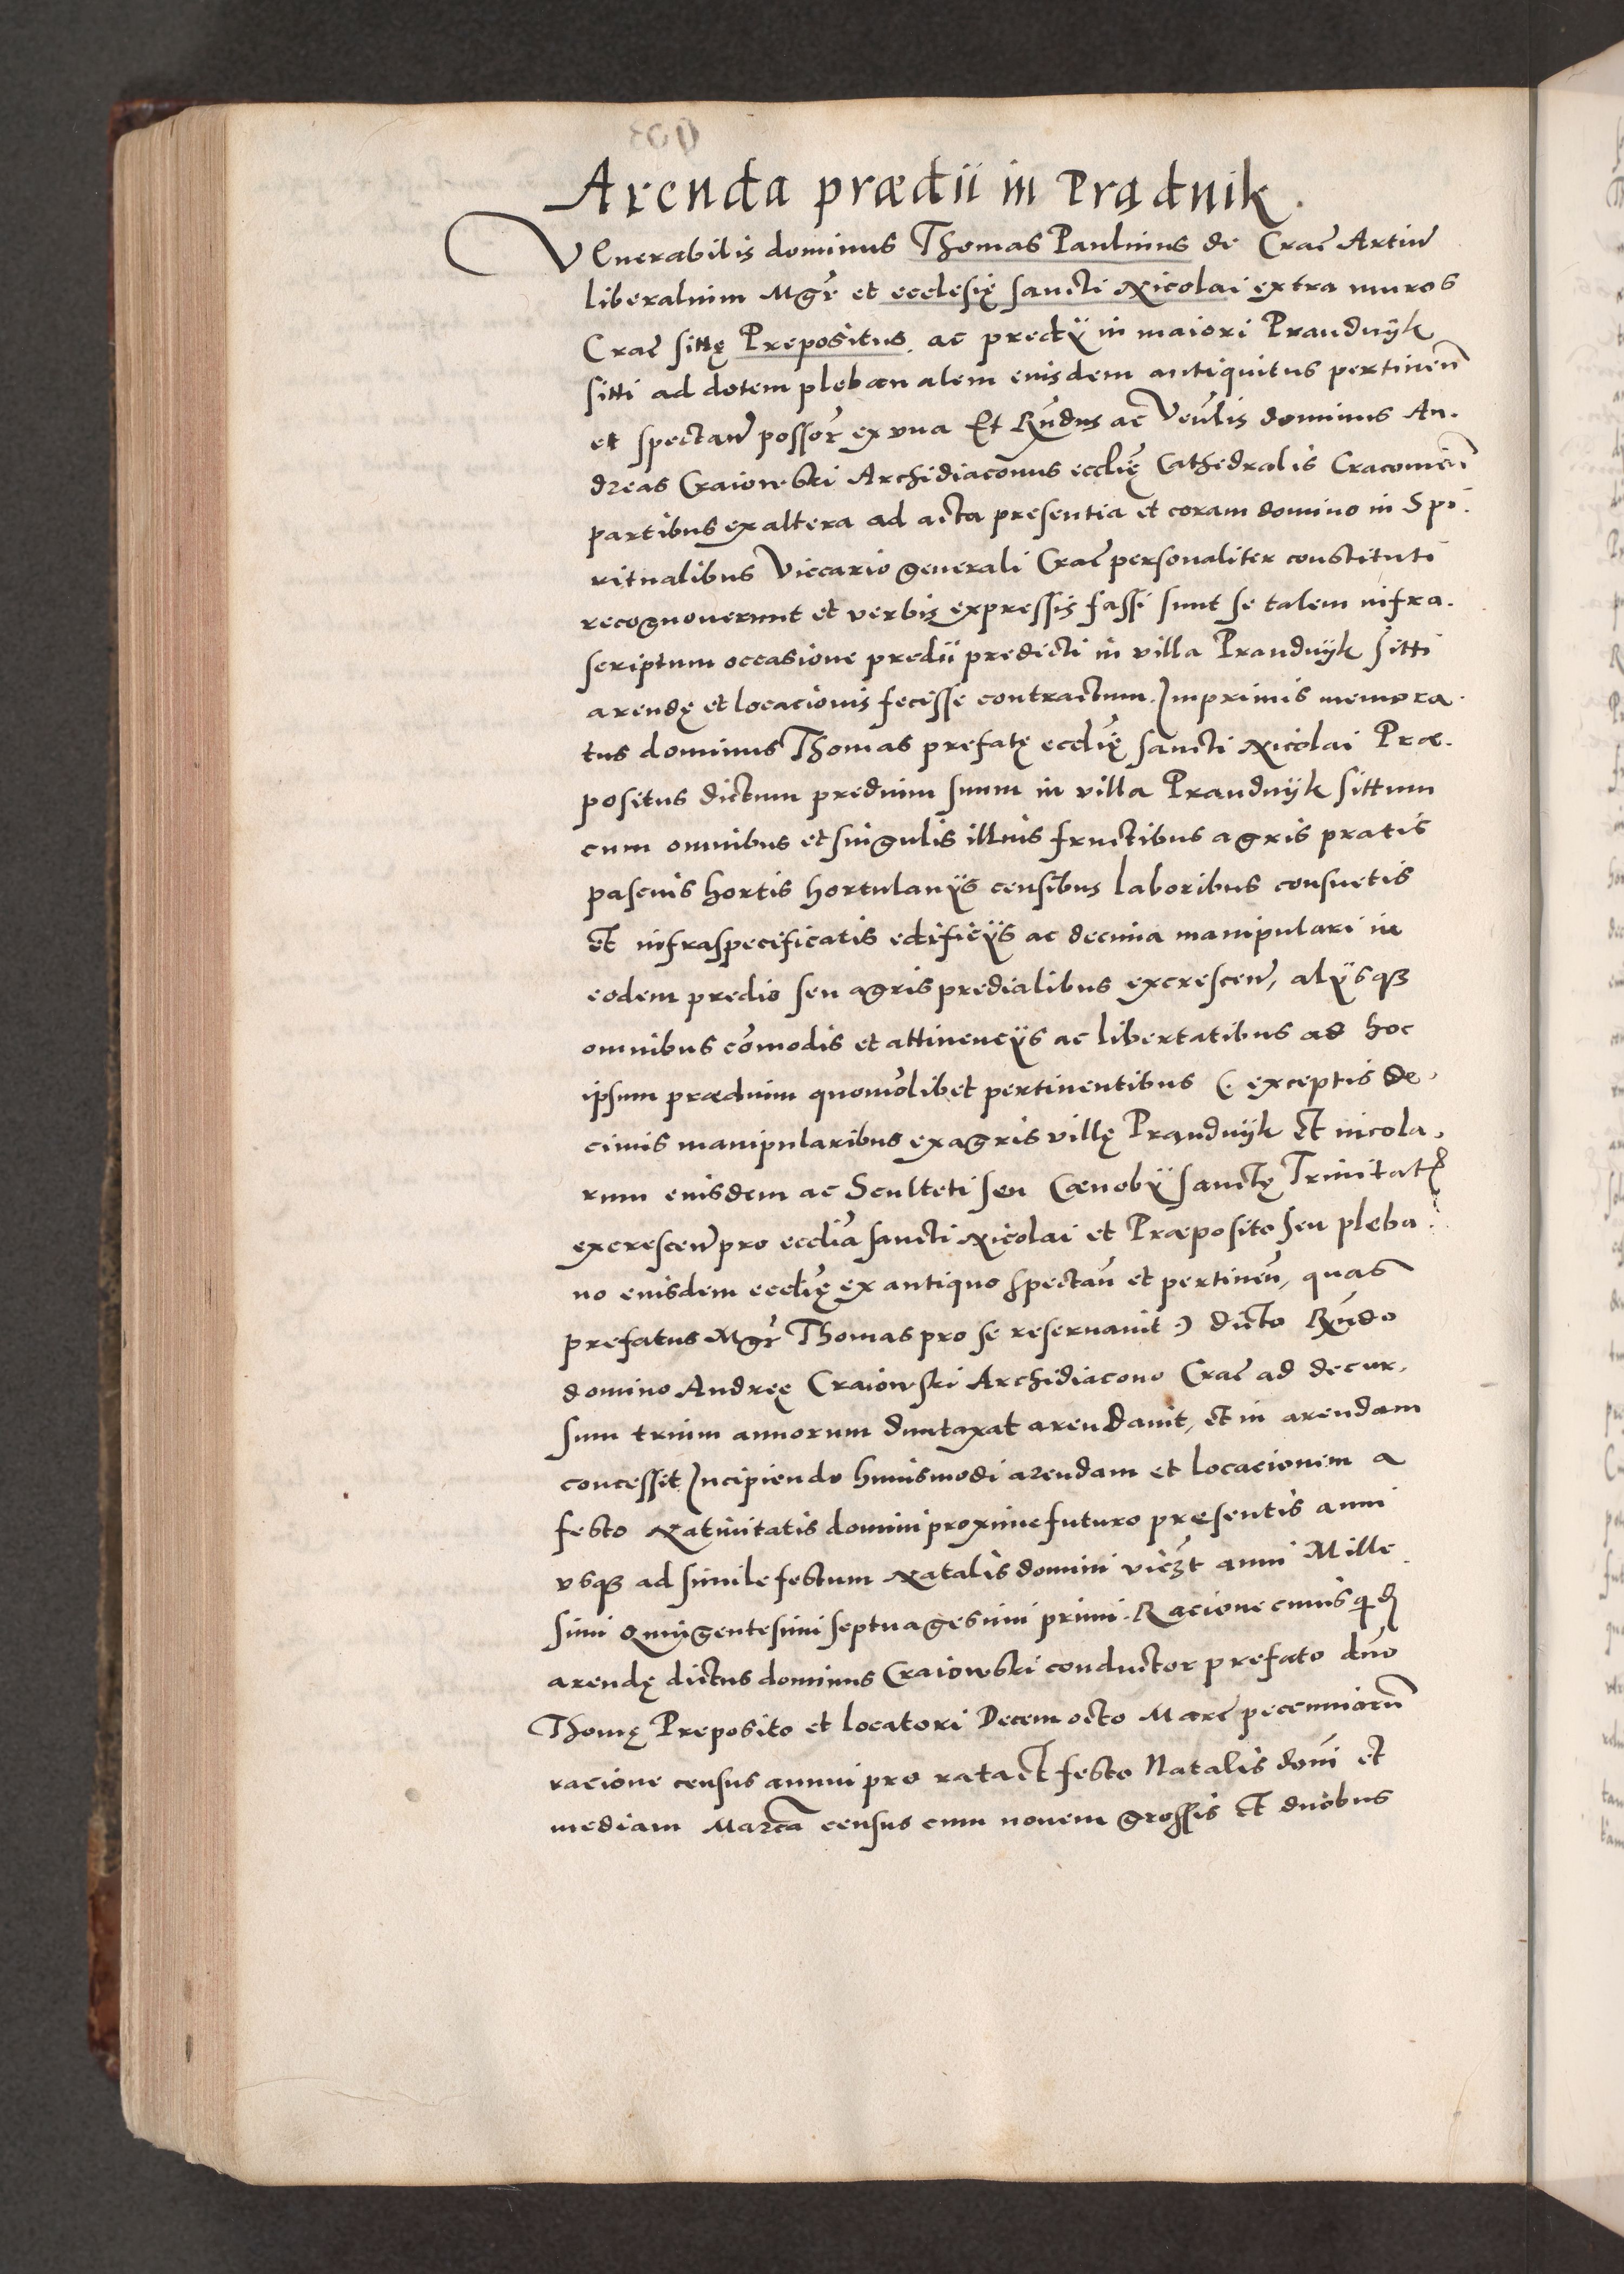 Arenda prædii in Prądnik.
VEnerabilis dominus Thomas Paulinus de Crac̃ Artiũ
liberalium Mgr̃ et ecclesię sancti Nicolai extra muros
Crac̃ sittę Prepositus. ac predÿ in maiori Prandnÿk
sitti ad dotem plebanalem eiusdem antiquitus pertineñ
et spectañ possor̃ ex vna Et Rñdus ac Veñlis dominus An.
dreas Craiowski Archidiaconus ecclię̃ Cathedralis Cracovieñ
partibus ex altera ad acta presentia et coram domino in Spi.
ritualibus Viccario generali Crac̃ personaliter constituti
recognouerunt et verbis expressis fassi sunt se talem infra.
scriptum occasione predii predicti in villa Prandnÿk sitti
arendę et locacionis fecisse contractum. Inprimis memora.
tus dominus Thomas prefatę ecclię̃ sancti Nicolai Præ.
positus dictum predium suum in villa Prandnÿk sittum
cum omnibus et singulis illius fructibus agris pratis
pascuis hortis hortulanÿs censibus laboribus consuetis
et infraspecificatis edificÿs ac decima manipulari in
eodem predio seu agris predialibus excresceñ, alÿsqꝫ
omnibus cõmodis et attinencÿs ac libertatibus ad hoc
ipsum prædium quomõlibet pertinentibus (. exceptis de,
cimis manipularibus ex agris villę Prandnÿk et incola,
rum eiusdem ac Sculteti seu Cænobÿ sanctę Trinitatꝭ
excresceñ pro ecclia̅ sancti Nicolai et Præposito seu pleba.
no eiusdem ecclię̃ ex antiquo spectañ et pertineñ, quas
prefatus Mgr̃ Thomas pro se reseruauit .) dicto Rñdo
domino Andreę Craiowski Archidiacono Crac̃ ad decur,
sum trium annorum duntaxat arendauit, et in arendam
concessit Incipiendo huiusmodi arendam et locacionem a
festo Natiuitatis domini proxime futuro presentis anni
vsqꝫ ad simile festum Natalis domini vicꝫt anni Mille
simi Quingentesimi septuagesimi primi. Racione cuius q̃d
arendę dictus dominus Craiowski conductor prefato dño
Thomę Preposito et locatori Decem octo Marc̃ pecuniarũ
racione census annui pro rata et festo Natalis dom̃i et
mediam Marcã census cum nouem grossis et duobus